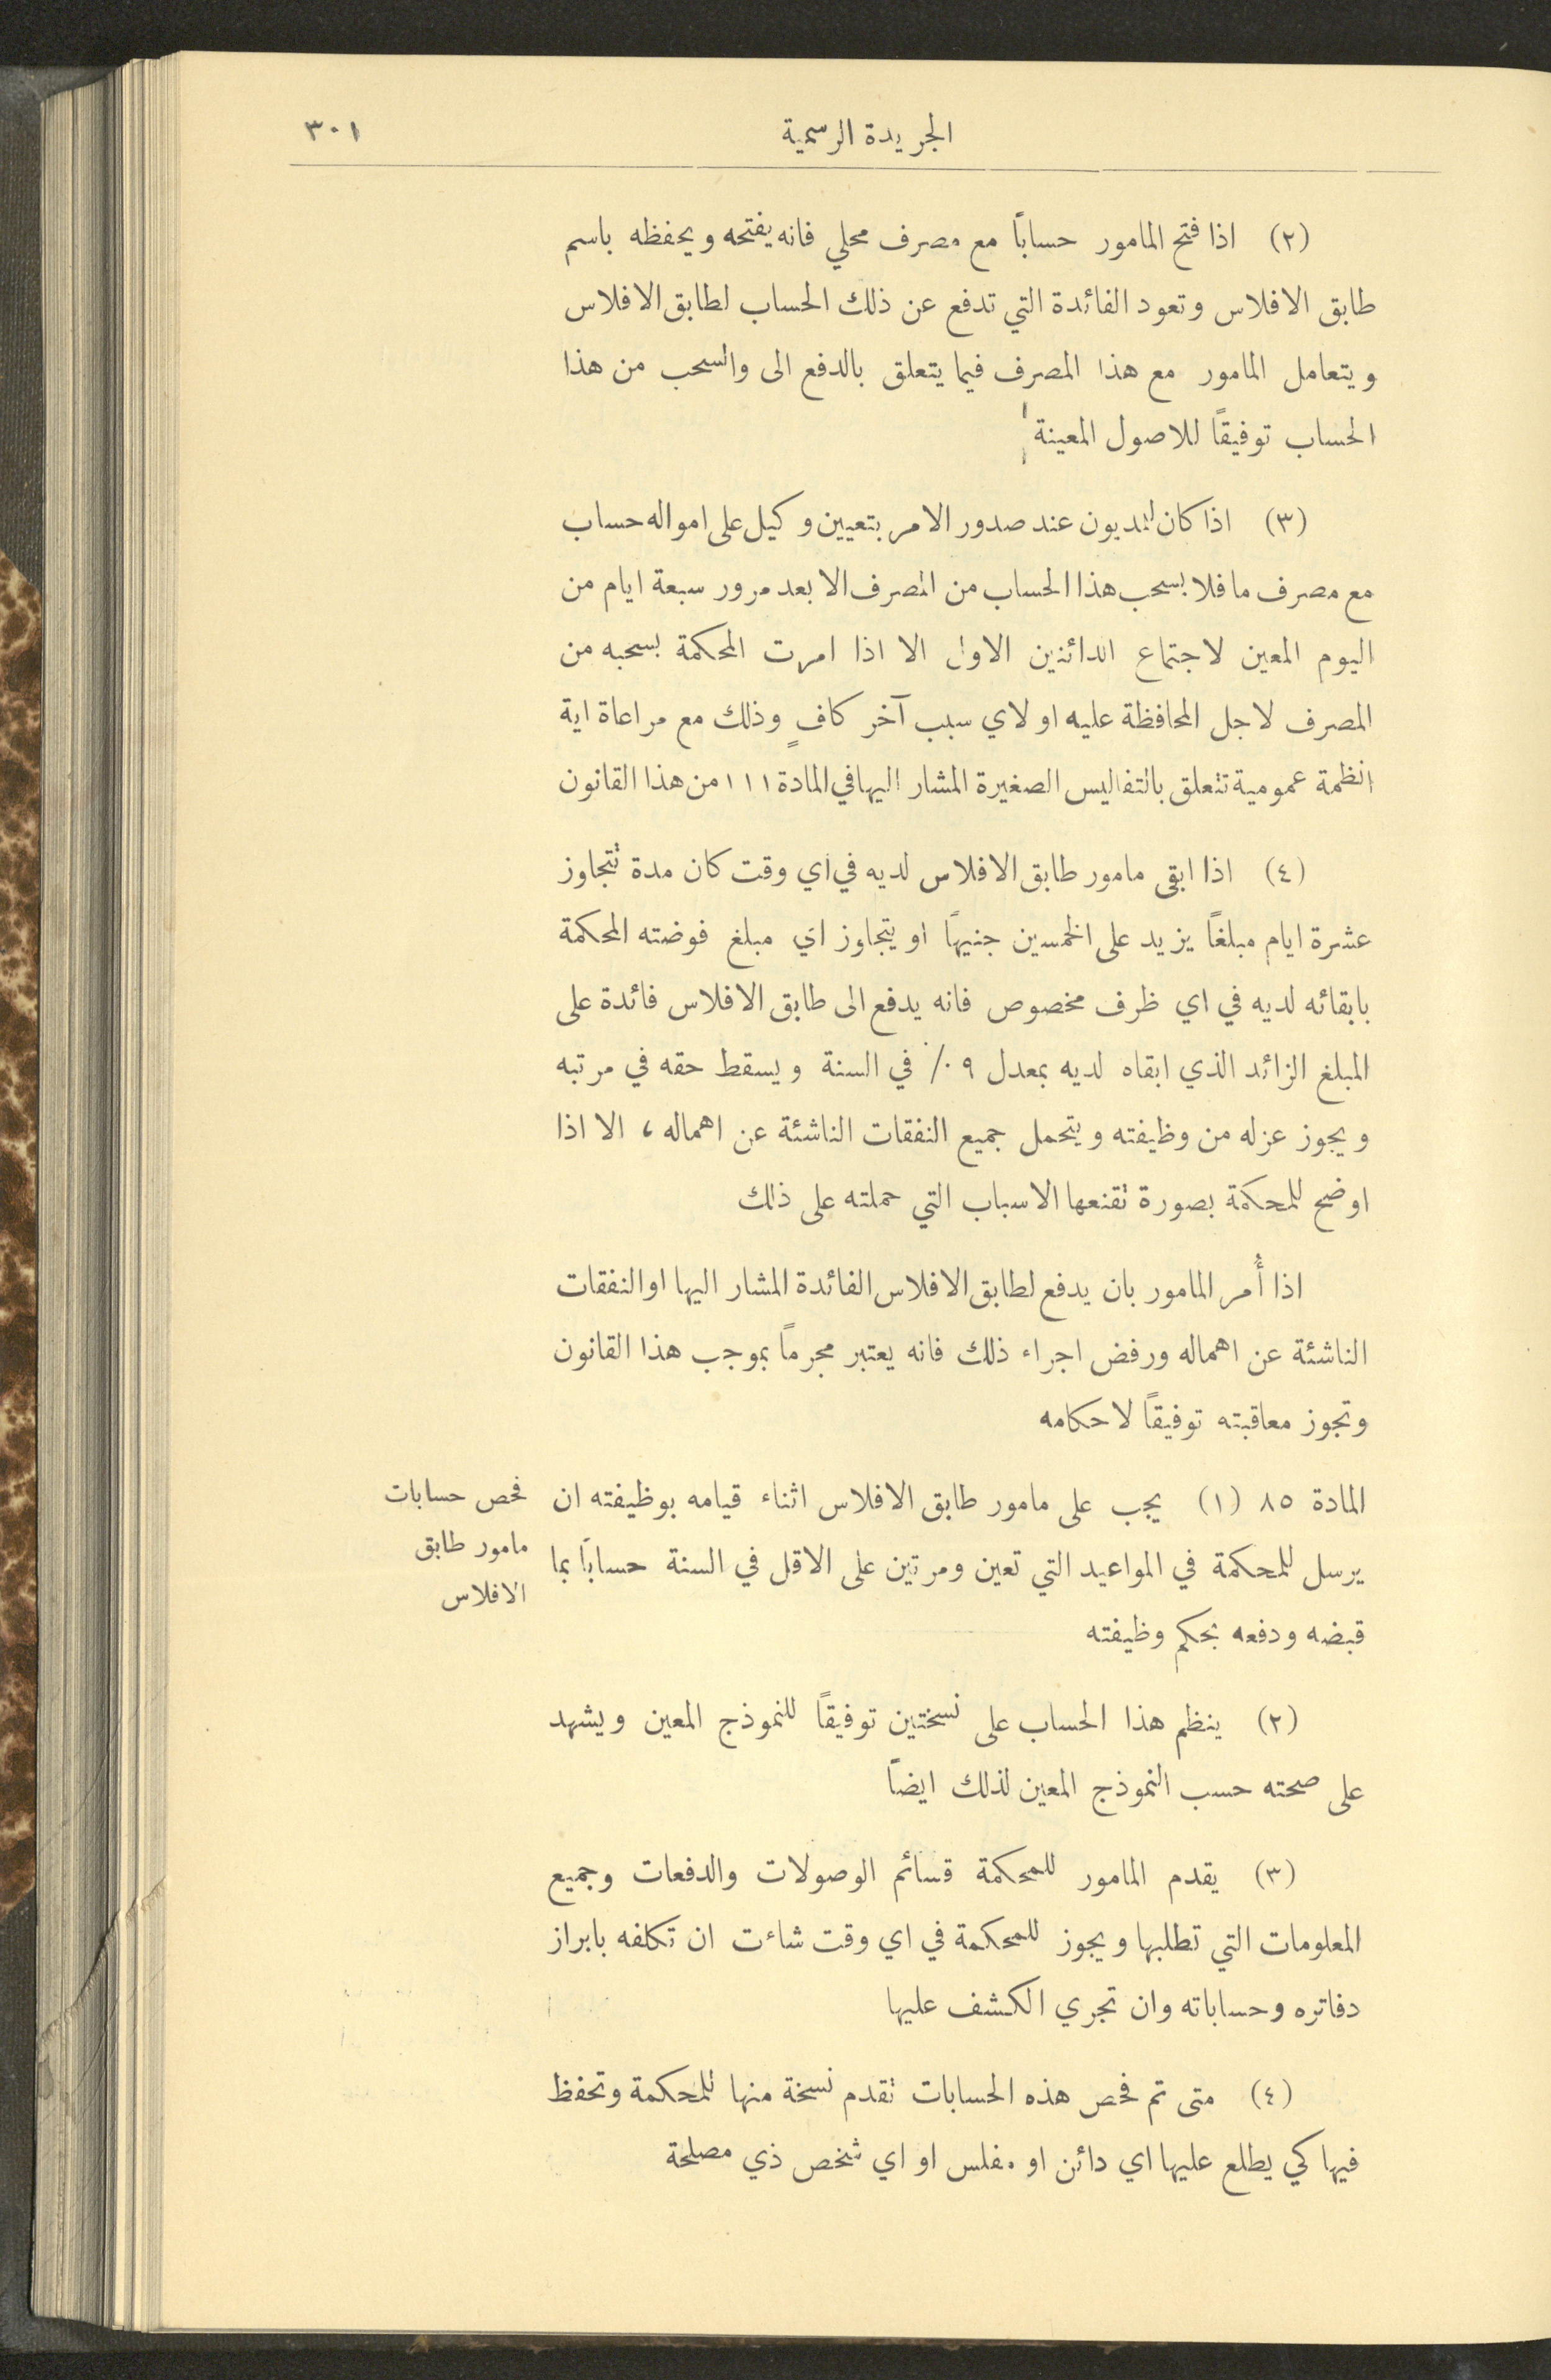 الجريدة الرسمية
٣٠١
(٢) اذا فتح المامور حساباً مع مصرف محلي فانه يفتحه ويحفظه باسم
طابق الافلاس وتعود الفائدة التي تدفع عن ذلك الحساب لطابق الافلاس
ويتعامل المامور مع هذا المصرف فيما يتعلق بالدفع الى والسحب من هذا
الحساب توفيقاً للاصول المعينة
(٣) اذا كان للمديون عند صدور الامر بتعيين وكيل على امواله حساب
مع مصرف ما فلا يسحب هذا الحساب من المصرف الا بعد مرور سبعة ايام من
اليوم المعين لاجتماع الدائنين الاول الا اذا امرت المحكمة بسحبه من
المصرف لاجل المحافظة عليه او لاي سبب آخر كافٍ وذلك مع مراعاة اية
انظمة عمومية تتعلق بالتفاليس الصغيرة المشار اليها في المادة ١١١ من هذا القانون
(٤) اذا ابقى مامور طابق الافلاس لديه في اي وقت كان مدة تتجاوز
عشرة ايام مبلغاً يزيد على الخمسين جنيهاً او يتجاوز اي مبلغ فوضته المحكمة
بابقائه لديه في اي ظرف مخصوص فانه يدفع الى طابق الافلاس فائدة على
المبلغ الزائد الذي ابقاه لديه بمعدل ٩ ٪ في السنة ويسقط حقه في مرتبه
ويجوز عزله من وظيفته ويتحمل جميع النفقات الناشئة عن اهماله ، الا اذا
اوضح للمحكمة بصورة تقنعها الاسباب التي حملته على ذلك
اذا أُمر المامور بان يدفع لطابق الافلاس الفائدة المشار اليها او النفقات
الناشئة عن اهماله ورفض اجراء ذلك فانه يعتبر مجرماً بموجب هذا القانون
وتجوز معاقبته توفيقاً لاحكامه
فحص حسابات
مامور طابق
الافلاس
المادة ٨٥ (١) يجب على مامور طابق الافلاس اثناء قيامه بوظيفته ان
يرسل للمحكمة في المواعيد التي تعين ومرتين على الاقل في السنة حساباً بما
قبضه ودفعه بحكم وظيفته
(٢) ينظم هذا الحساب على نسختين توفيقاً للنموذج المعين ويشهد
على صحته حسب النموذج المعين لذلك ايضاً
(٣) يقدم المامور للمحكمة قسائم الوصولات والدفعات وجميع
المعلومات التي تطلبها ويجوز للمحكمة في اي وقت شاءت ان تكلفه بابراز
دفاتره وحساباته وان تجري الكشف عليها
(٤) متى تم فحص هذه الحسابات تقدم نسخة منها للمحكمة وتحفظ
فيها كي يطلع عليها اي دائن او مفلس او اي شخص ذي مصلحة